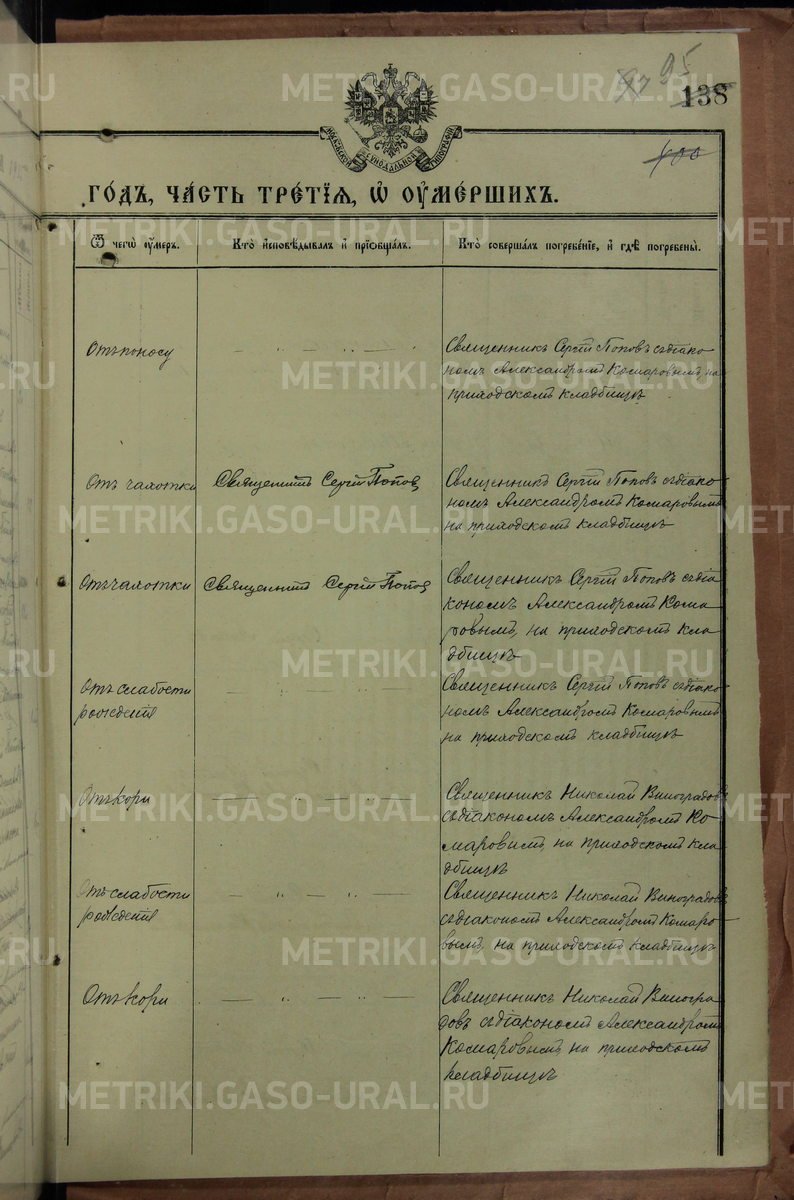 95
138
400
МОСКОВСКОЙ СѴНОДАЛЬНОЙ ТИПОГРАФІИ
ГО́ДЪ, ЧА́СТЬ ТРЕ́ТІѦ, Ѽ ОУ҆МЕ́РШИХЪ.
Ѿ чегѡ̀ оу҆́меръ.
Кто̀ и҆сповѣ́дывалъ и҆ прїѡбща́лъ.
Кто̀ соверша́лъ погребе́нїе, и҆ гдѣ̀ погребе́ны.
Отъ поносу
— „ — „ —
Священникъ Сергій Поповъ съ діако
номъ Александромъ Комаровымъ на
приходскомъ кладбищѣ
Отъ чахотки
Священникъ Сергій Поповъ
Священникъ Сергій Поповъ съ діако
номъ Александромъ Комаровымъ
на приходскомъ кладбищѣ
Отъ чахотки
Священникъ Сергій Поповъ
Священникъ Сергій Поповъ съ діа
кономъ Александромъ Кома
ровымъ, на приходскомъ кла
дбищѣ
Отъ слабости
рожденія
— „ — „ —
Священникъ Сергій Поповъ съ діако
номъ Александромъ Комаровымъ
на приходскомъ кладбищѣ
Отъ кори
— „ — „ —
Священникъ Николай Виноградовъ
съ діакономъ Александромъ Ко
маровымъ, на приходскомъ кла
дбищѣ
Отъ слабости
рожденія
— „ — „ —
Священникъ Николай Виноградовъ
съ діакономъ Александромъ Комаро
вымъ, на приходскомъ кладбищѣ
Отъ кори
— „ — „ —
Священникъ Николай Виногра
довъ съ діакономъ Александромъ
Комаровымъ на приходскомъ
кладбищѣ
METRIKI.GASO-URAL.RU